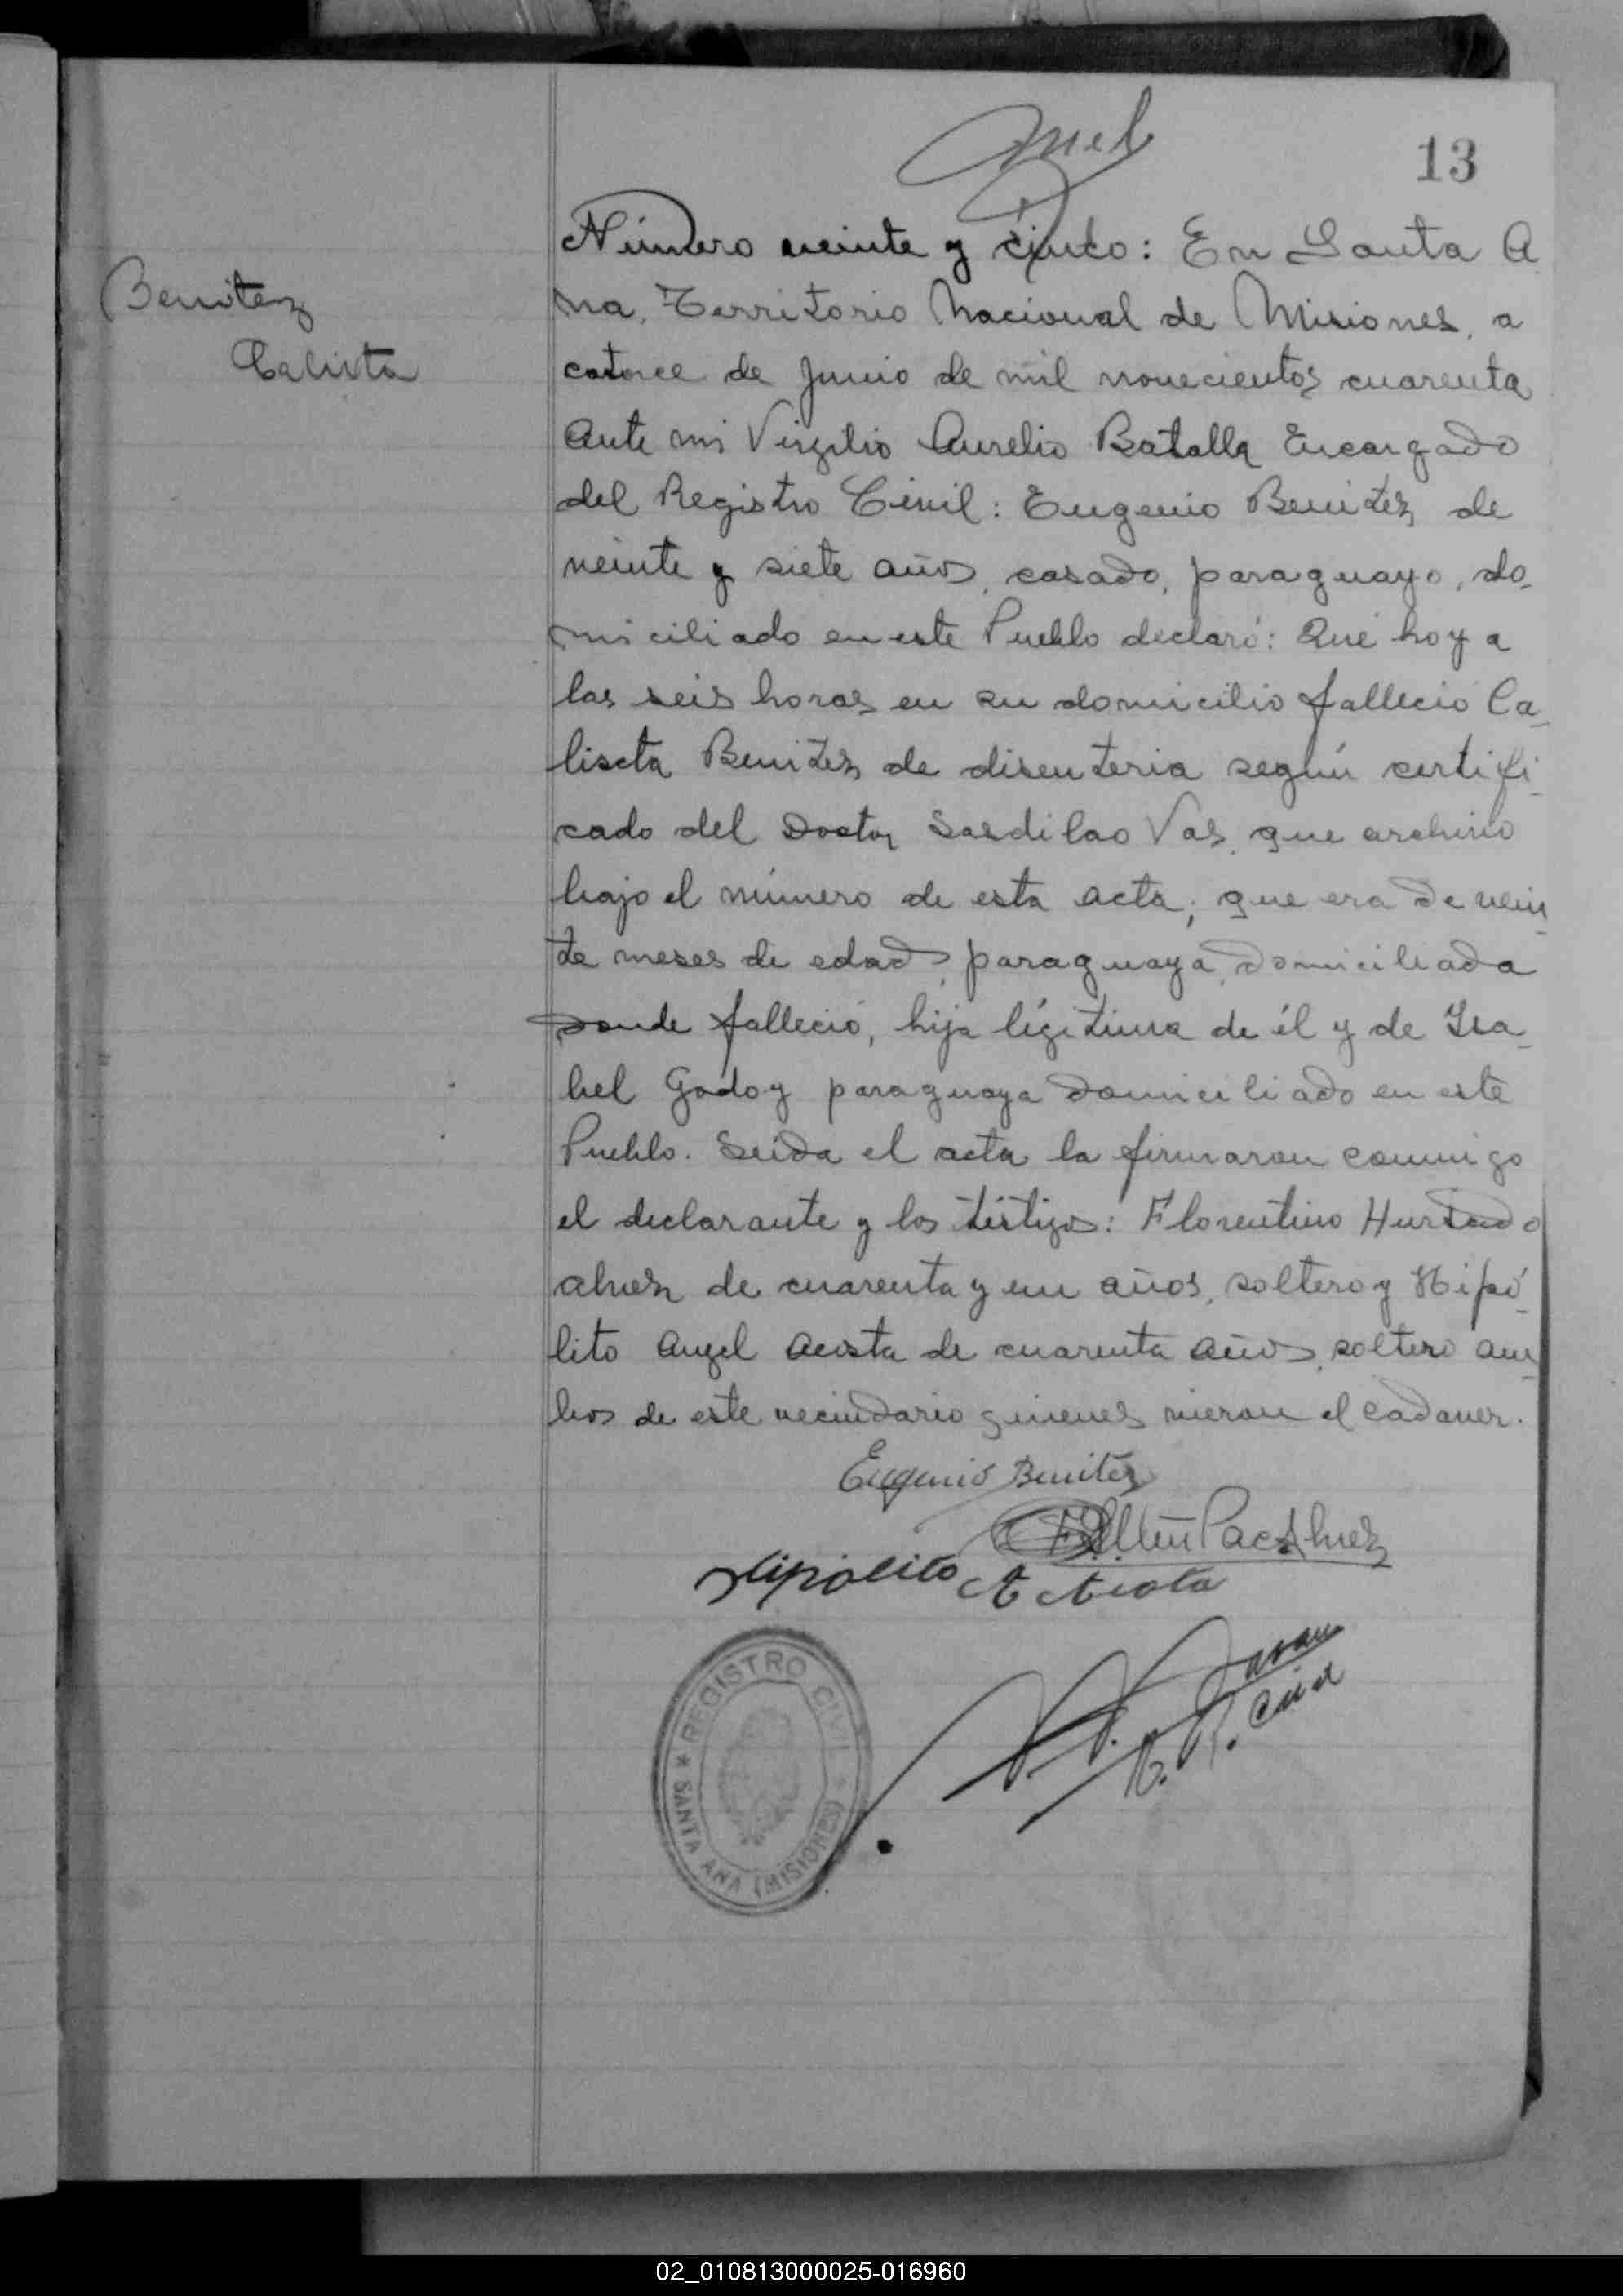 13
Número veinte y cinco: En Santa A
Benitez
na, Territorio Nacional de Misiones, a
Calista
catorce de Junio de mil novecientos cuarenta
ante mi Virgilio Aurelio Batalla Encargado
del Registro Civil: Eugenio Benitez de
veinte y siete años, casado, paraguayo, do-
miciliado en este Pueblo declaró: Que hoy a
las seis horas en su domicilio falleció Ca-
liscta Benitez de disenteria según certifi-
cado del Doctor Vas, que archivo
bajo el número de esta acta; que era de vein-
te meses de edad, paraguaya, domiciliada
donde falleció, hija légitima de él y de Isa-
bel Godoy paraguaya domiciliado en este
Pueblo. Leida el acta la firmaron conmigo
el declarante y los téstigos: Florentino Hurtado
de cuarenta y un años, soltero y Hipó-
lito Angel Acosta de cuarenta años, soltero am-
bos de este vecindario quienes vieron el cadaver.
Eugenio Benitéz
Hipólito A Acosta
REGISTRO CIVIL
* SANTA ANA (MISIONES) *
02_010813000025-016960